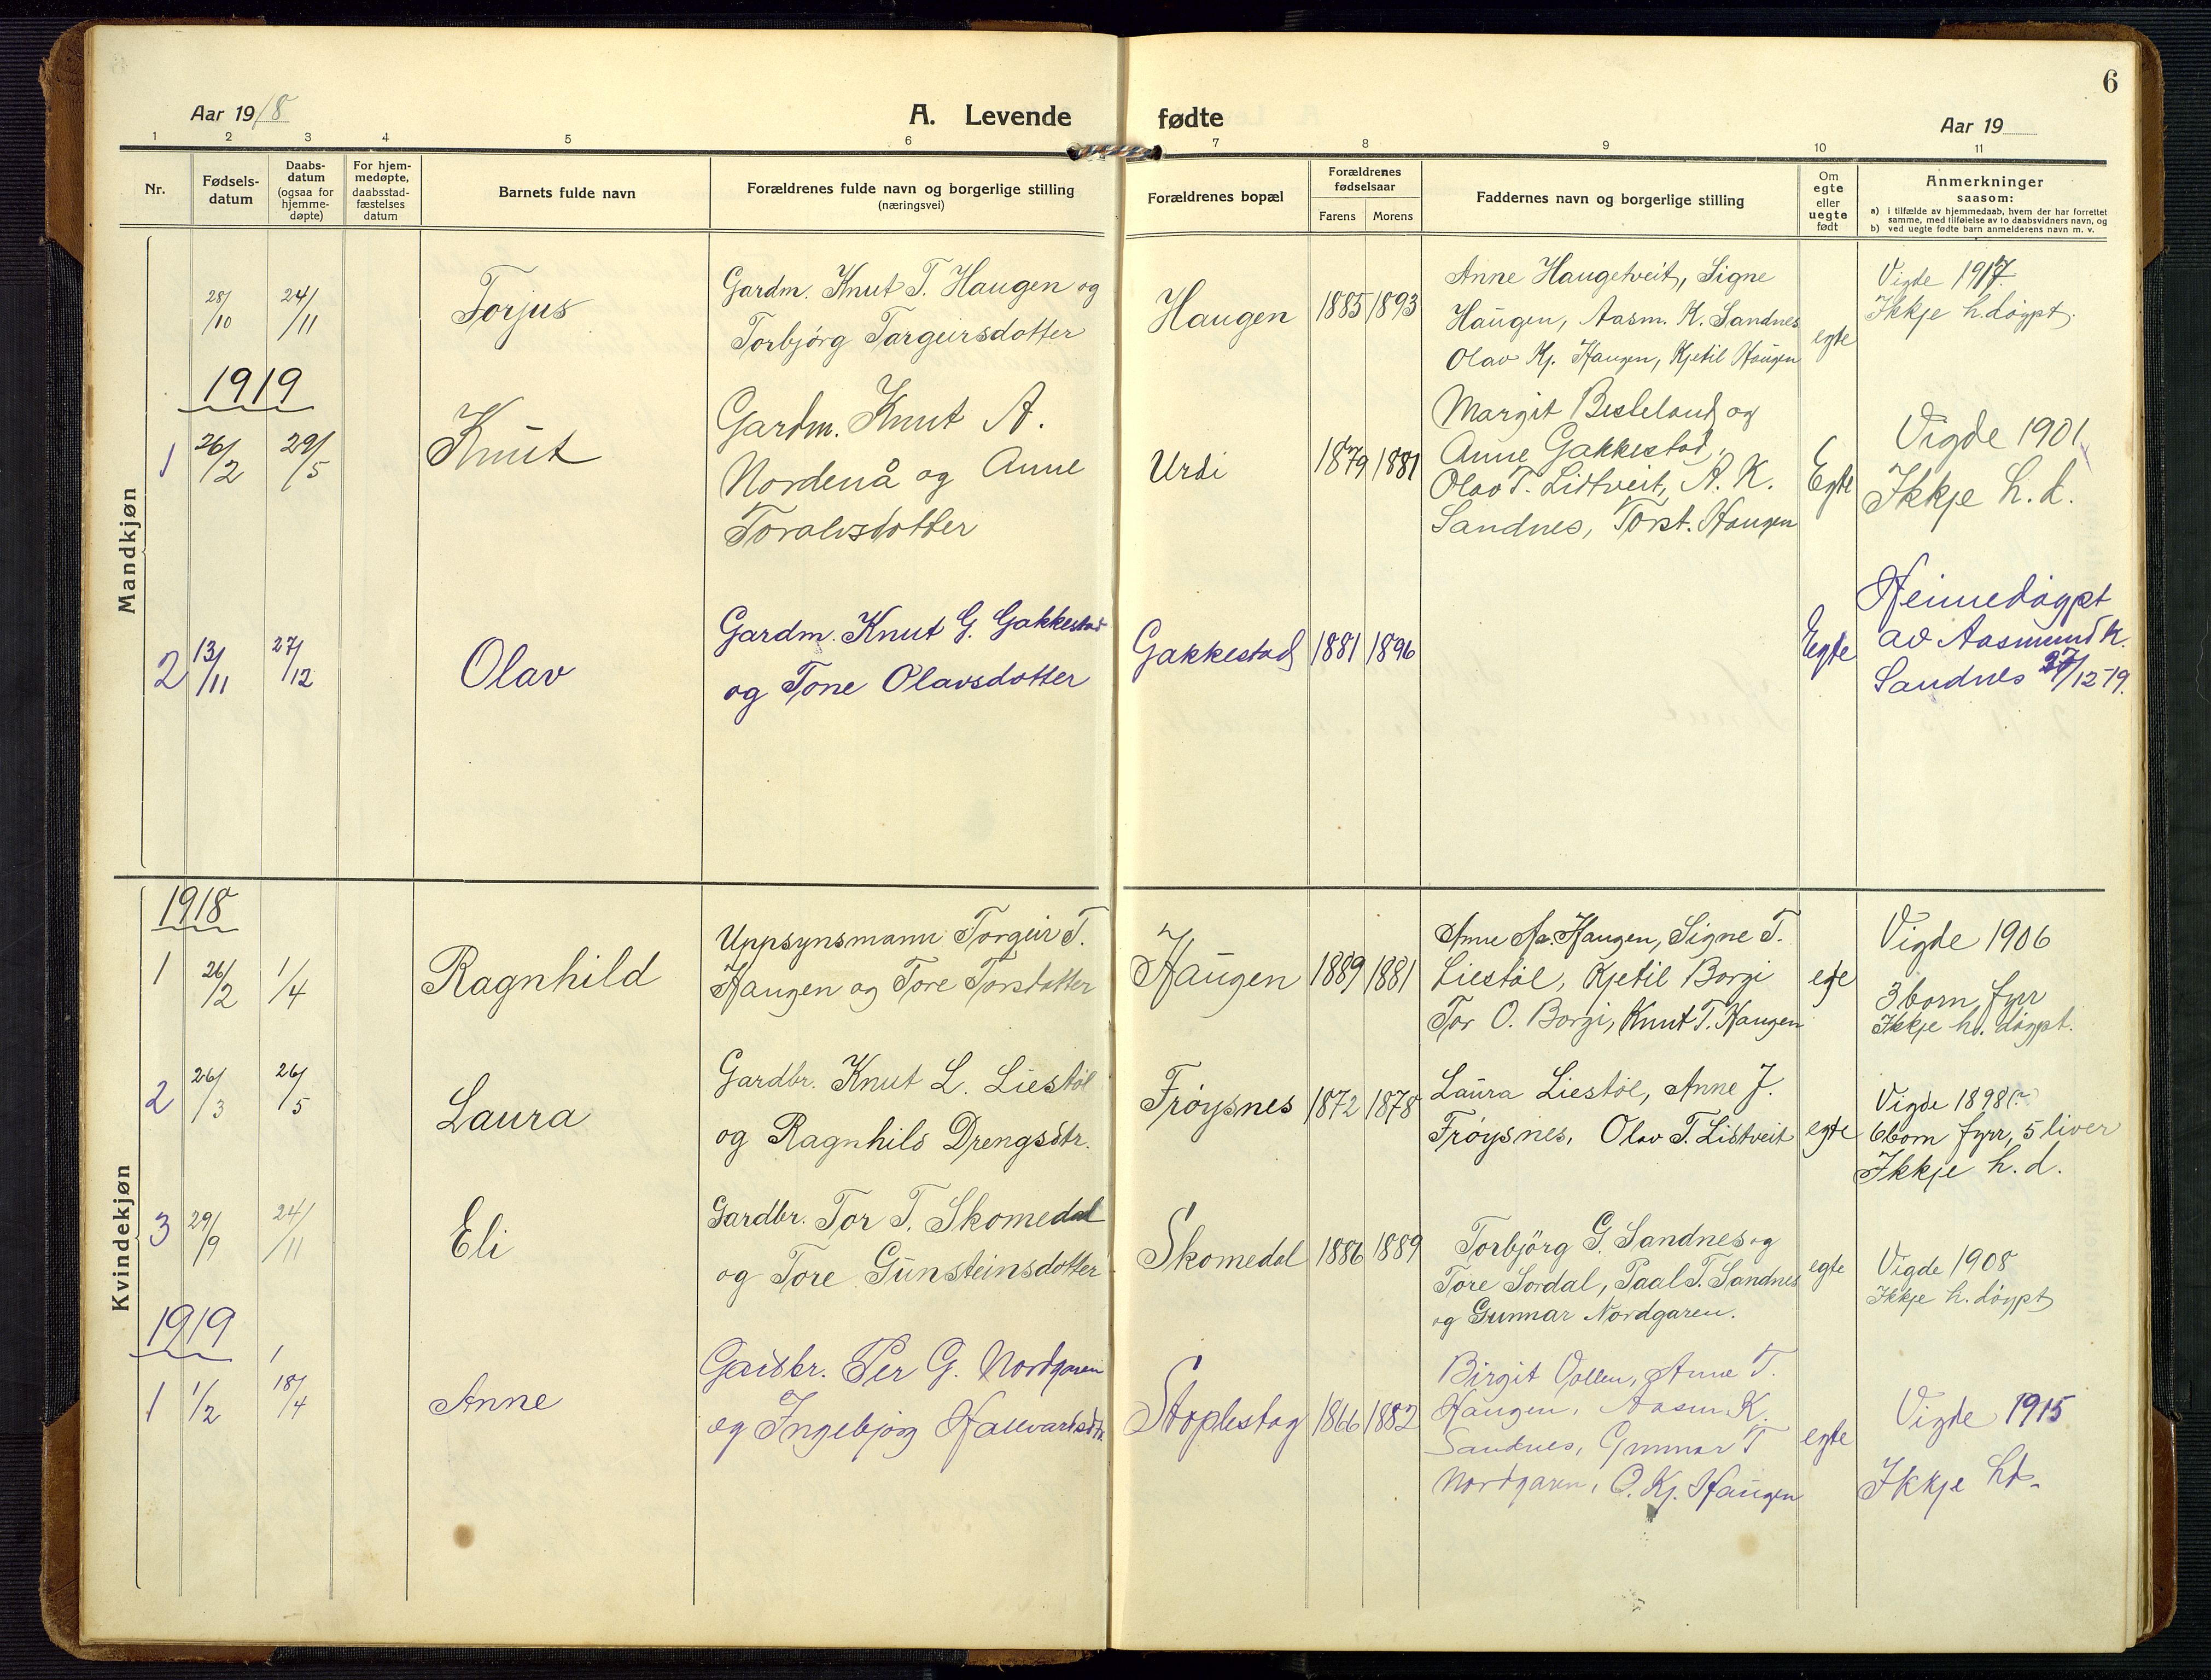 6
Aar 1918
A. Levende fødte
Aar 19
1 2 3 4 5 6 7 8 9 10 11
Nr.
Fødsels-
datum
Daabs-
datum
(ogsaa for
hjemme-
døpte)
For hjem-
medøpte,
daabsstad-
fæstelses
datum
Barnets fulde navn
Forældrenes fulde navn og borgerlige stilling
(næringsvei)
Forældrenes bopæl
Forældrenes
fødselsaar
Farens Morens
Faddernes navn og borgerlige stilling
Om
egte
eller
uegte
født
Anmerkninger
saasom:
a) i tilfælde av hjemmedaab, hvem der har forrettet
samme, med tilføielse av to daabsvidners navn, og
b) ved uegte fødte barn anmelderens navn m. v.
Mandkjøn
28/10 24/11 Torjus
Gardm. Knut T. Haugen og
Torbjørg Targeirsdotter
Haugen 1885 1893
Anne Haugetveit, Signe
Haugen, Aasm. K. Sandnes
Olav Kj. Haugen, Kjetil Haugen
egte
Vigde 1917.
Ikkje h. døypt.
1919
1 26/2 29/5 Knut
Gardm. Knut A.
Nordenå og Anne
Toralvsdotter
Urdi 1879 1881
Margit Besteland og
Anne Gakkestad,
Olav T. Listveit, A. K.
Sandnes, Torst. Haugen
Egte
Vigde 1901
Ikkje h. d.
2 13/11 27/12 Olav
Gardm. Knut G. Gakkestad
og Tone Olavsdotter
Gakkestad 1881 1896
Egte
Heimedøypt
av Aasmund K.
Sandnes 27/12-19.
Kvindekjøn
1918
1 26/2 1/4 Ragnhild
Uppsynsmann Torgeir T.
Haugen og Tore Torsdotter
Haugen 1889 1881
Anne Aa. Haugen, Signe T.
Liestøl, Kjetil Borgi
Tor O. Borgi, Knut T. Haugen
egte
Vigde 1906
3 born fyrr
Ikkje h. døypt.
2 26/3 26/5 Laura
Gardbr. Knut L. Liestøl
og Ragnhild Drengsdtr.
Frøysnes 1872 1878
Laura Liestøl, Anne J.
Frøysnes, Olav T. Listveit
egte
Vigde 1898
6 born fyrr, 5 liver
Ikkje h. d.
3 29/9 24/11 Eli
Gardbr. Tor T. Skomedal
og Tore Gunsteinsdotter
Skomedal 1886 1889
Torbjörg G. Sandnes og
Tore Sordal, Paal T. Sandnes
og Gunnar Nordgaren.
egte
Vigde 1908
Ikkje h. døypt
1919
1 1/2 18/4 Anne
Gardbr. Per G. Nordgaren
og Ingebjørg Hallvardsdtr.
Stoplestog 1866 1882
Birgit Vollen, Anne T.
Haugen, Aasm. K.
Sandnes, Gunnar T
Nordgaren, O. Kj. Haugen
egte
Vigde 1915
Ikkje hd.